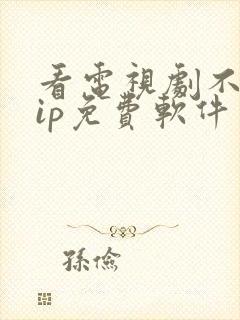 看電視劇不
ip免費軟件
孫儉